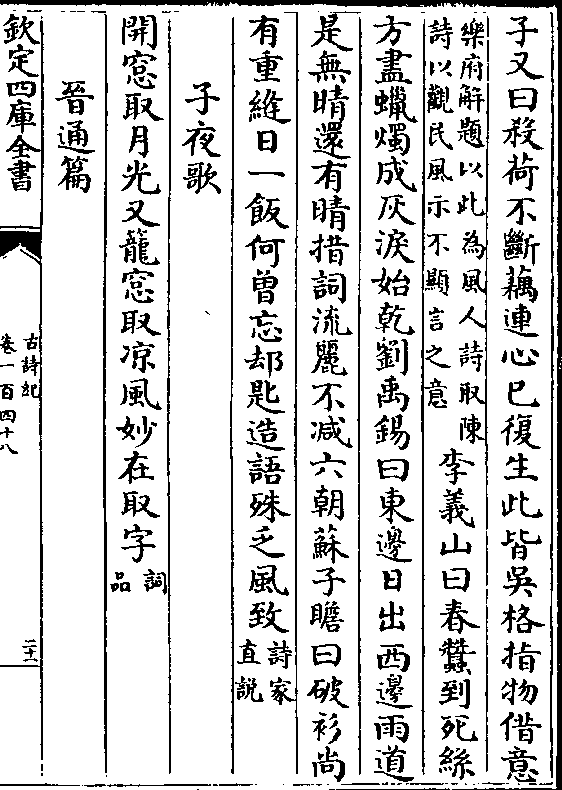 子又曰殺荷不斷藕連心已復生此皆吳格指物借意
樂府解題以此為風人詩取陳
詩以觀民風示不顯言之意
李義山曰春蠶到死絲
方盡蠟燭成灰淚始乾劉禹錫曰東邊日出西邊雨道
是無晴還有晴措詞流麗不减六朝蘇子瞻曰破衫尚
有重縫日一飯何曽忘却匙造語殊乏風致
詩家
直説
子夜歌
開窓取月光又籠窓取凉風妙在取字
詞
品
晉通篇
欽定四庫全書
古詩紀
卷一百四十八